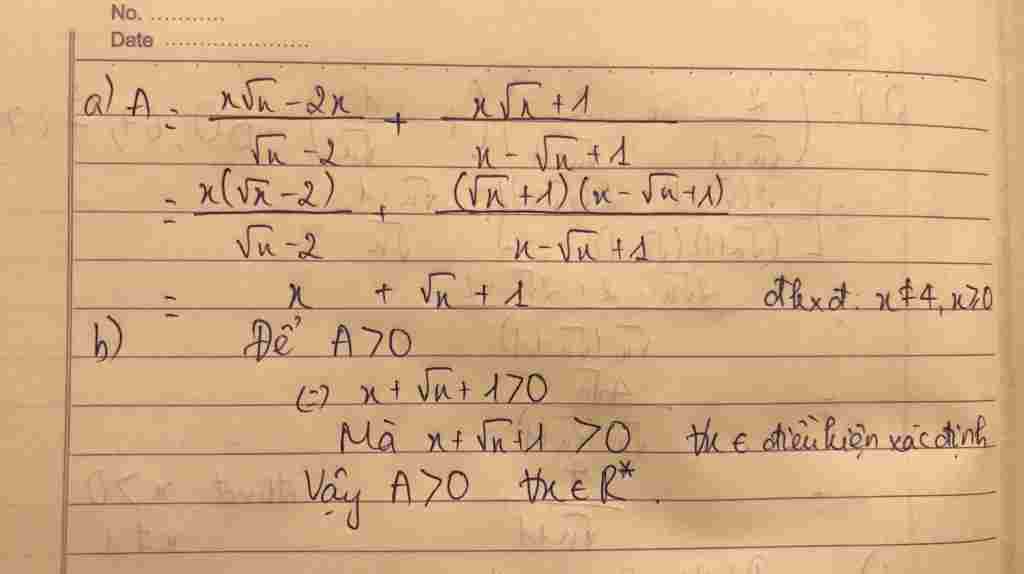 No. ...........
Date .....................
a) A = (x√x - 2x)/(√x - 2) + (x√x + 1)/(x - √x + 1)
= x(√x - 2)/(√x - 2) + (√x + 1)(x - √x + 1)/(x - √x + 1)
= x + √x + 1 đkxđ: x ≠ 4, x ≥ 0
b) Để A > 0
(=) x + √x + 1 > 0
Mà x + √x + 1 > 0 ∀x ∈ điều kiện xác định
Vậy A > 0 ∀x ∈ R*.